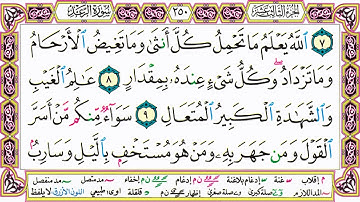 الجزء الثالث عشر ٢٥٠ سورة الرعد
٧ ٱللَّهُ يَعْلَمُ مَا تَحْمِلُ كُلُّ أُنثَىٰ وَمَا تَغِيضُ ٱلْأَرْحَامُ
وَمَا تَزْدَادُ ۖ وَكُلُّ شَىْءٍ عِندَهُۥ بِمِقْدَارٍ ٨ عَٰلِمُ ٱلْغَيْبِ
وَٱلشَّهَٰدَةِ ٱلْكَبِيرُ ٱلْمُتَعَالِ ٩ سَوَآءٌ مِّنكُم مَّنْ أَسَرَّ
ٱلْقَوْلَ وَمَن جَهَرَ بِهِۦ وَمَنْ هُوَ مُسْتَخْفٍۭ بِٱلَّيْلِ وَسَارِبٌۢ